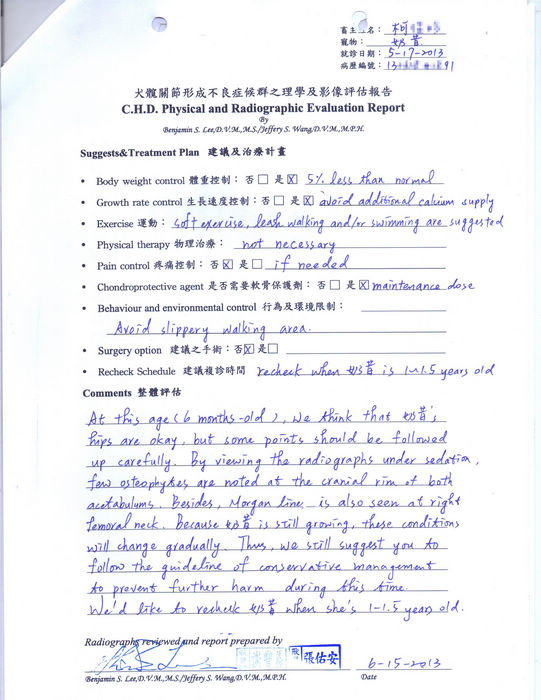 畜主姓名： 柯
寵物： 奶昔
就診日期： 5-17-2013
病歷編號： 13 91
犬髖關節形成不良症候群之理學及影像評估報告
C.H.D. Physical and Radiographic Evaluation Report
By
Benjamin S. Lee,D.V.M.,M.S./Jeffery S. Wang,D.V.M.,M.P.H.
Suggests&Treatment Plan 建議及治療計畫
• Body weight control 體重控制：否□ 是☒ 5% less than normal
• Growth rate control 生長速度控制：否□ 是☒ avoid additional calcium supply
• Exercise 運動： soft exercise, leash walking and/or swimming are suggested
• Physical therapy 物理治療： not necessary
• Pain control 疼痛控制：否☒ 是□ if needed
• Chondroprotective agent 是否需要軟骨保護劑：否□ 是☒ maintenance dose
• Behaviour and environmental control 行為及環境限制：
Avoid slippery walking area.
• Surgery option 建議之手術：否☒ 是□
• Recheck Schedule 建議複診時間 recheck when 奶昔 is 1~1.5 years old
Comments 整體評估
At this age (6 months-old), we think that 奶昔's
hips are okay, but some points should be followed
up carefully. By viewing the radiographs under sedation,
few osteophytes are noted at the cranial rim of both
acetabulums. Besides, Morgan line is also seen at right
femoral neck. Because 奶昔 is still growing, these conditions
will change gradually. Thus, we still suggest you to
follow the guideline of conservative management
to prevent further harm during this time.
We'd like to recheck 奶昔 when she's 1-1.5 years old.
Radiographs reviewed and report prepared by
張佑安
6-15-2013
Benjamin S. Lee,D.V.M.,M.S./Jeffery S. Wang,D.V.M.,M.P.H.
Date